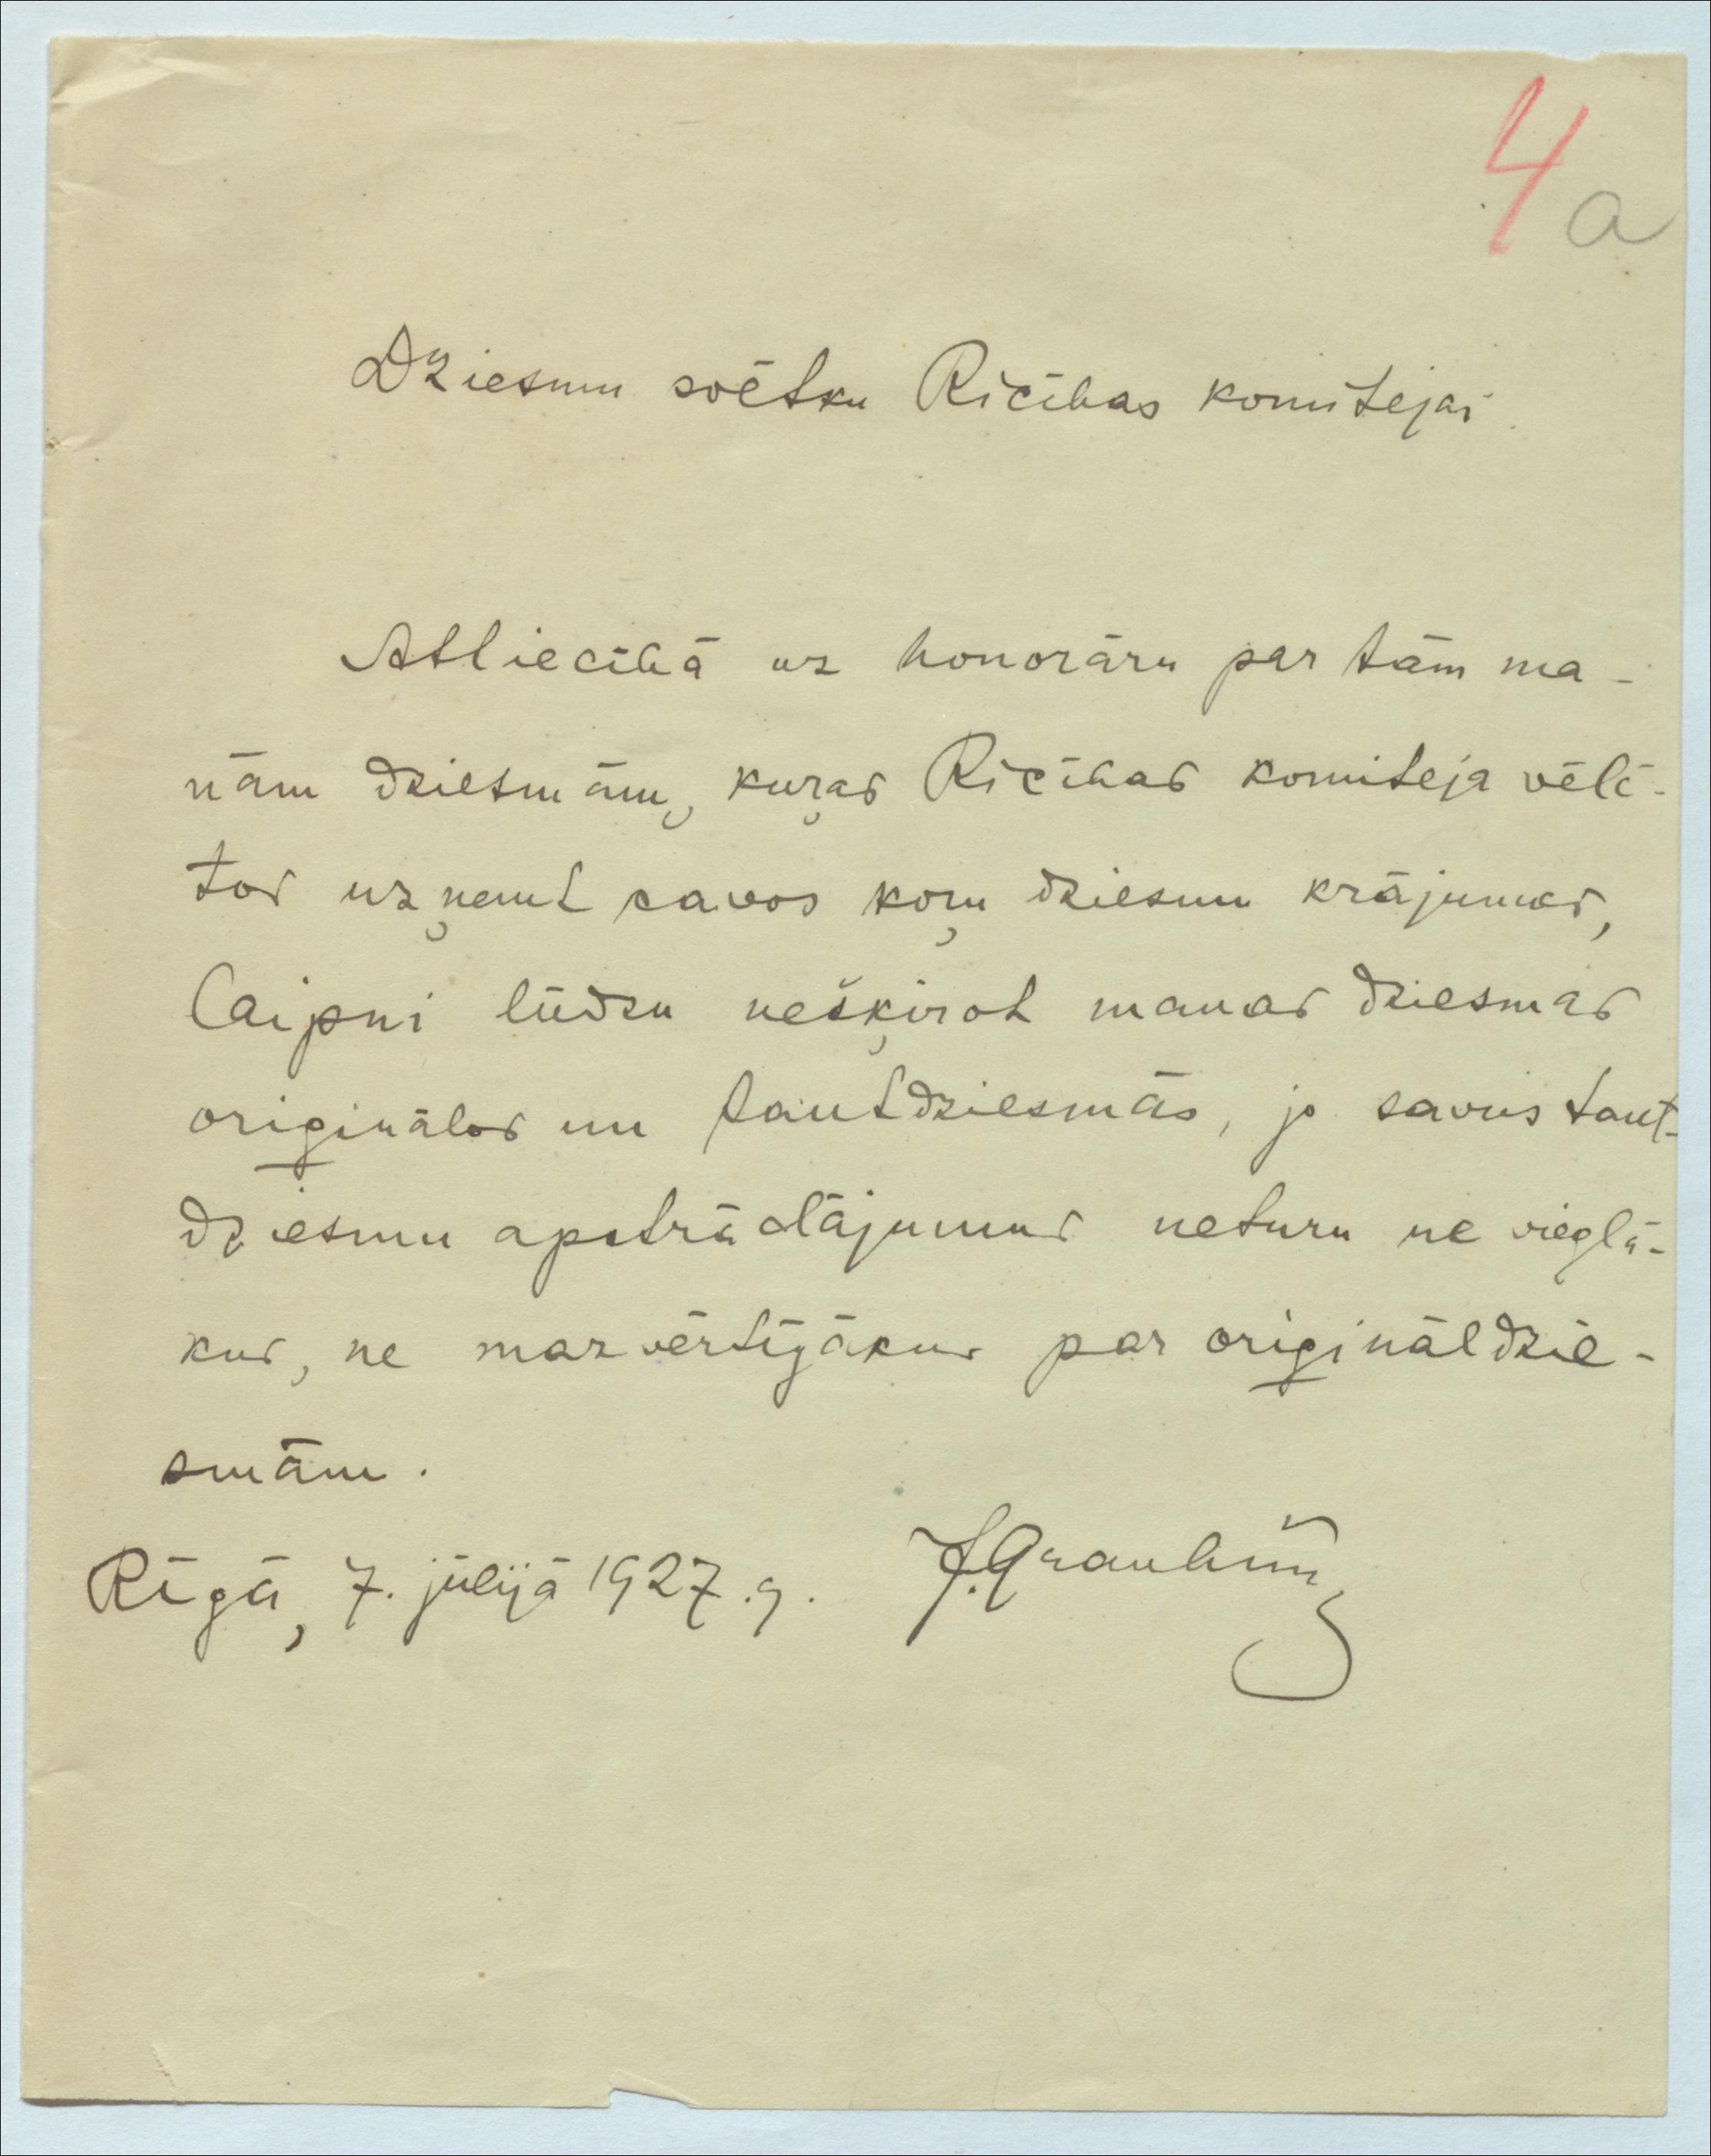 4a
Dziesmu svētku Rīcības komitejai.
Attiecībā uz honorāru par tām ma-
nām dziesmām, kuŗas Rīcības komiteja vēlē-
tos uzņemt savos koŗu dziesmu krājumos,
laipni lūdzu nešķirot manas dziesmas
originālos un tautdziesmās, jo savus taut-
dziesmu apstrādājumus neturu ne vieglā-
kus, ne mazvērtīgākus par originäldzie-
smām.
Rīgā, 7. jūlijā 1927. g. J. Graubiņš